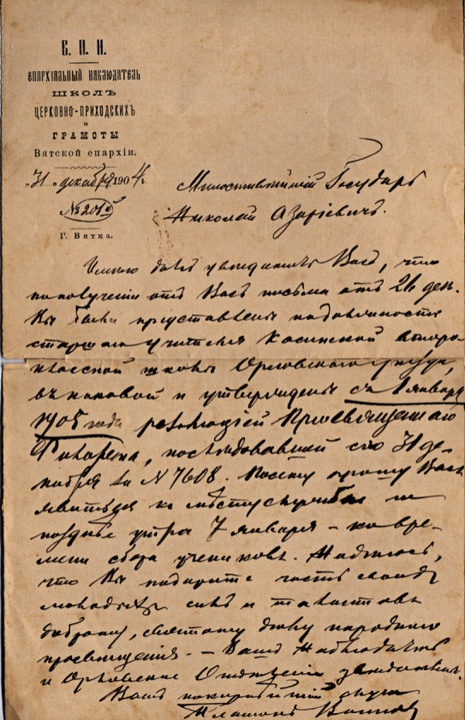 В. П. И.
ЕПАРХІАЛЬНЫЙ НАБЛЮДАТЕЛЬ
ШКОЛЪ
ЦЕРКОВНО-ПРИХОДСКИХЪ
и
ГРАМОТЫ
Вятской епархіи.
„31„ декабря 1904 г.
№
Г. Вятка.
Милостивѣйшій Государь
Николай Азаріевичъ.
Имѣю честь увѣдомить Васъ, что
по полученіи отъ Васъ письма отъ 26 дек.
Вы были представлены на должность
старшаго учителя второ-
классной школы Орловскаго уѣзда,
въ каковой и утверждены съ 1 января
1905 года резолюціей Преосвященнаго
Филарета, послѣдовавшей сего 31 де-
кабря за N 7608. Посему прошу Васъ
явиться къ мѣсту службы не
позднѣе утра 7 января – ко вре-
мени сбора учениковъ. Надѣюсь,
что Вы подарите часть своихъ
молодыхъ силъ и талантовъ
доброму, святому дѣлу народнаго
просвѣщенія. –
и Орловское Отдѣленіе
Вашъ покорнѣйшій слуга